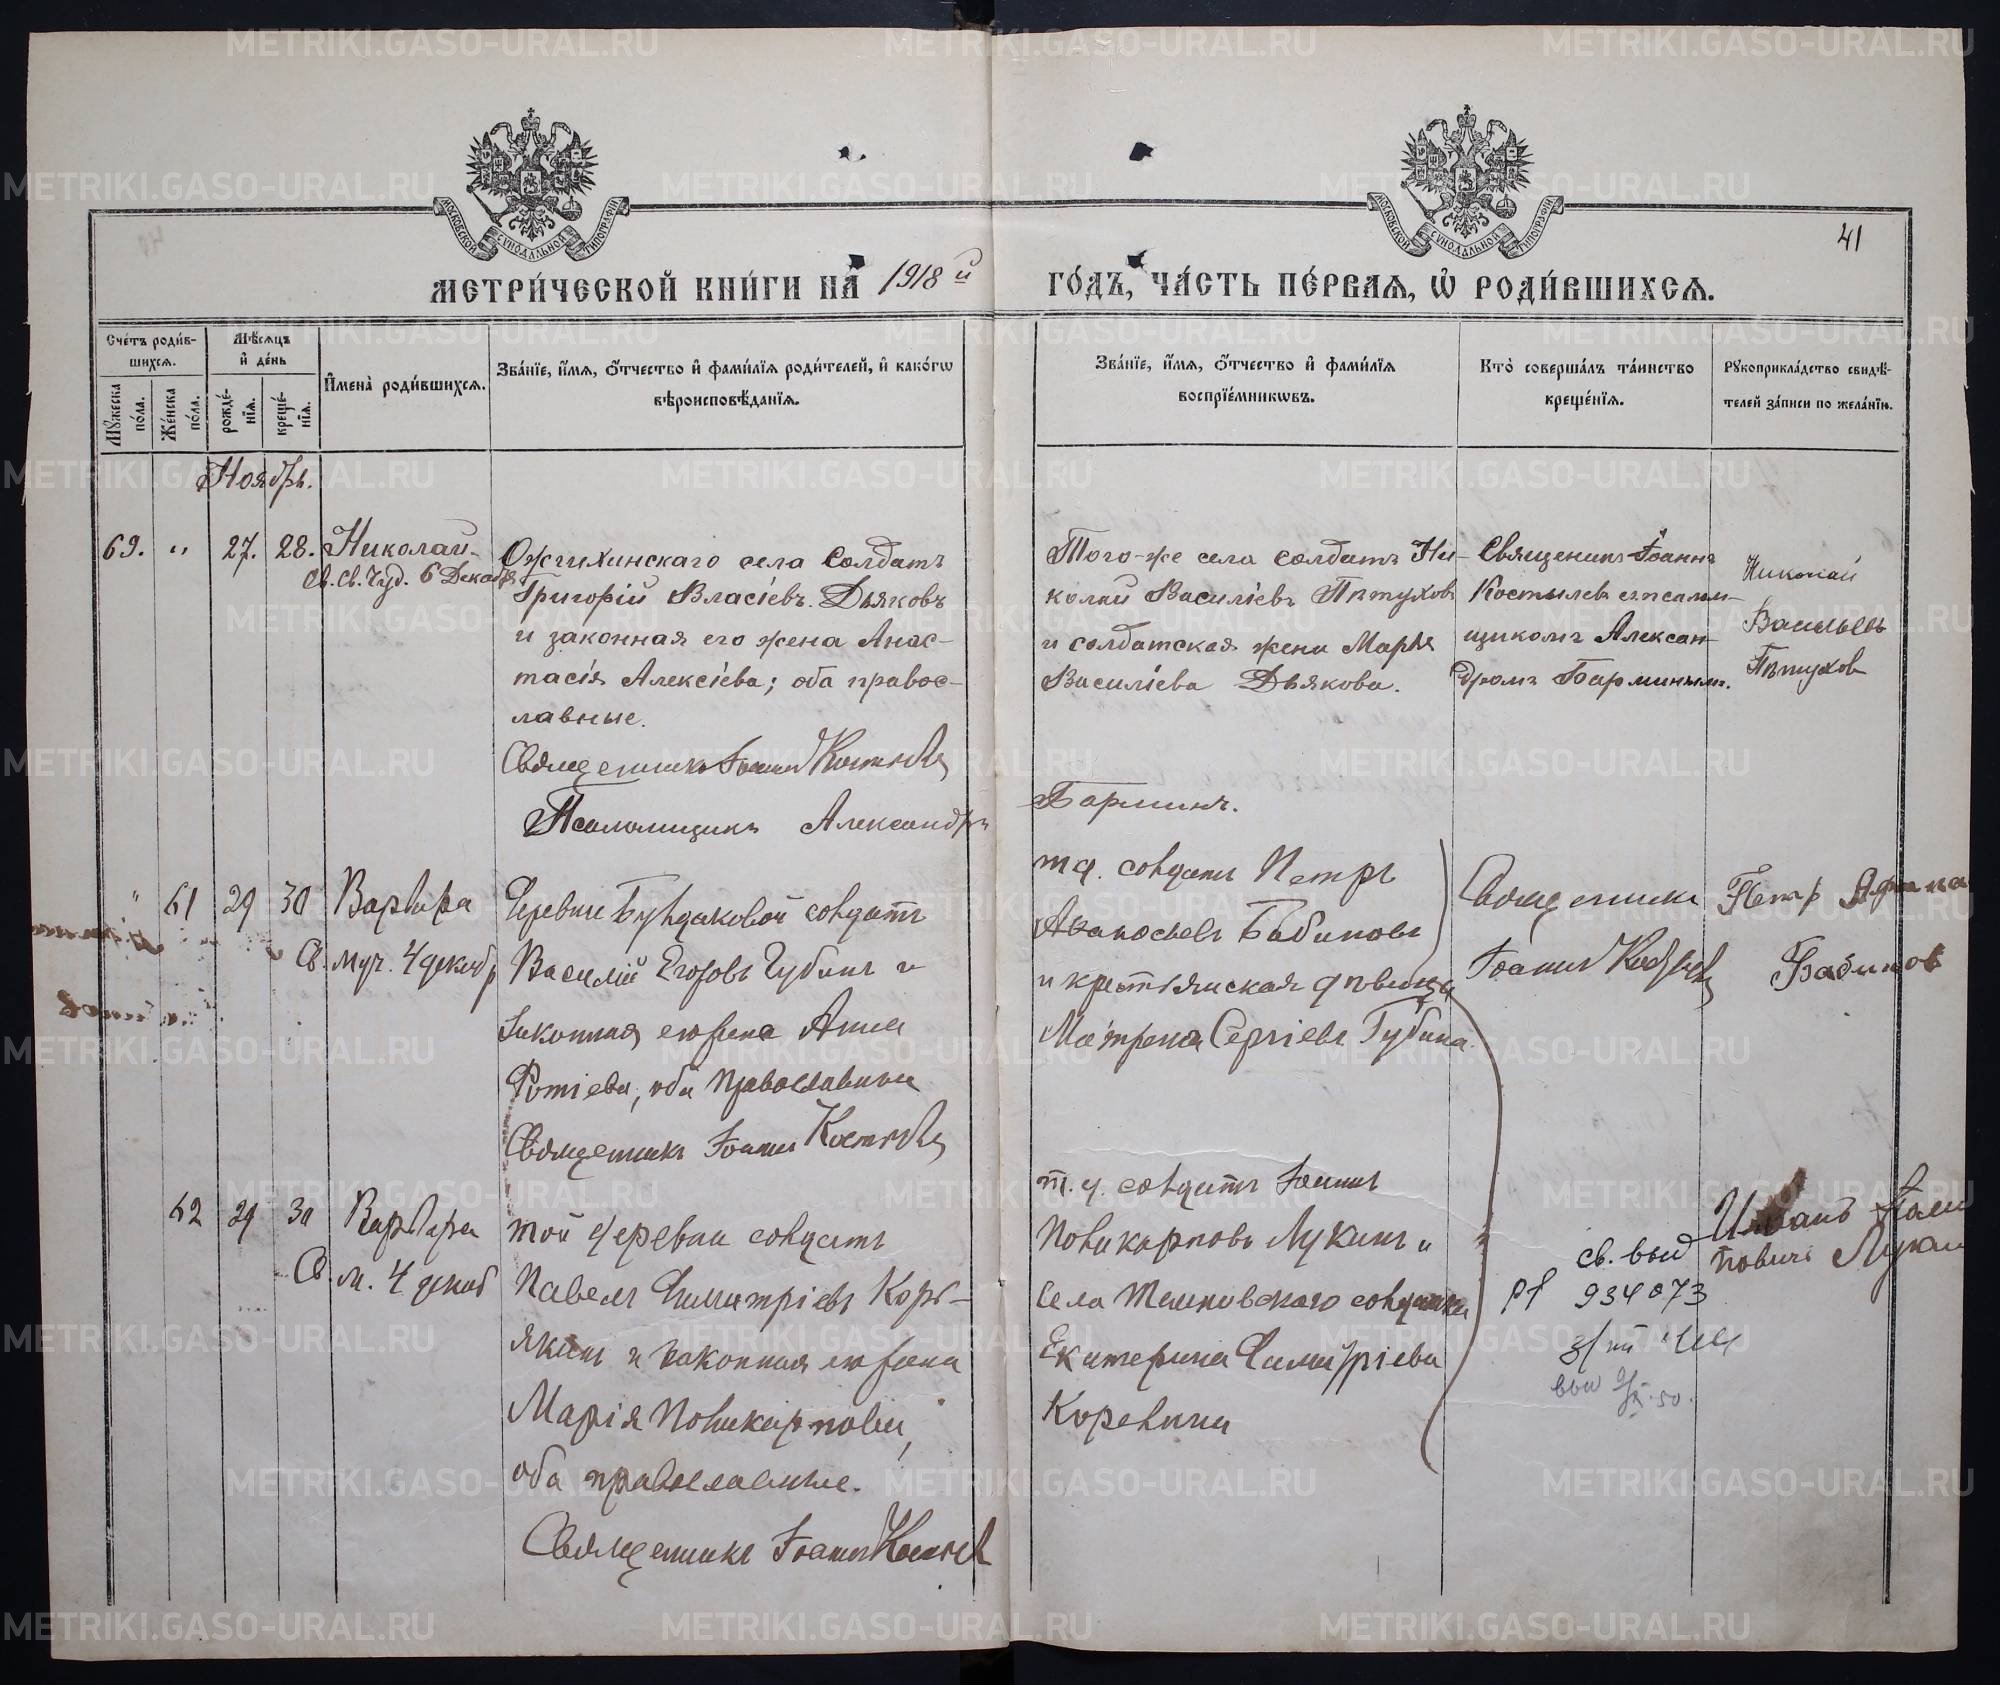 41
МОСКОВСКОЙ СѴНОДАЛЬНОЙ ТИПОГРАФІИ
МОСКОВСКОЙ СѴНОДАЛЬНОЙ ТИПОГРАФІИ
МЕТРИ́ЧЕСКОЙ КНИ́ГИ НА 1918й ГО́ДЪ, ЧА́СТЬ ПЕ́РВАѦ, Ѡ҆ РОДИ́ВШИХСѦ.
Сче́тъ роди́в-
шихсѧ.
Мꙋ́жеска по́ла.
Же́нска по́ла.
Мѣ́сѧцъ
и҆ де́нь
рожде́-
нїѧ.
креще́-
нїѧ.
И҆мена̀ роди́вшихсѧ.
Зва́нїе, и҆́мѧ, ѻ҆́тчество и҆ фами́лїѧ роди́телей, и҆ како́гѡ
вѣроисповѣ́данїѧ.
Зва́нїе, и҆́мѧ, ѻ҆́тчество и҆ фами́лїѧ
воспрїе́мникѡвъ.
Кто̀ соверша́лъ та́инство
креще́нїѧ.
Рꙋкоприкла́дство свидѣ́-
телей за́писи по жела́нїю.
Ноябрь.
69. „ 27. 28. Николай
Св. Чуд. 6 Декабр
Ожгихинскаго села солдатъ
Григорій Власіевъ Дьяковъ
и законная его жена Анас-
тасія Алексіева; оба правос-
лавные.
Священникъ Іоаннъ Костылев
Псаломщикъ Александръ
Того-же села солдатъ Ни-
колай Василіевъ Пѣтухов
и солдатская жена Марья
Василіева Дьякова.
Бармин.
Священникъ Іоаннъ
Костылевъ съ псалом-
щикомъ Алексан-
дромъ Барминым.
Николай
Васильев
Пѣтухов
„ 61 29 30 Варвара
Св. муч. 4 декабр
Деревни Бундаковой солдатъ
Василій Егоровъ Губинъ и
законная его жена Анна
Фотіева, оба православные
Священникъ Іоаннъ Костылев
т д. солдатъ Петръ
Аѳанасьевъ Бабиновъ
и крестьянская дѣвица
Матрена Сергіева Губина.
Священникъ
Іоаннъ Костылев
Петр Афана
Бабинов
62 29 30 Варвара
Св. м. 4 декаб
той деревни солдатъ
Павелъ Димитріевъ Корь-
якинъ и законная его жена
Марія Поликарпова,
оба православные.
Священникъ Іоаннъ Костылев
т. д. солдатъ Іоаннъ
Поликарповъ Лукинъ и
села солдатка
Екатерина Димитріева
св. выд
934073
METRIKI.GASO-URAL.RU